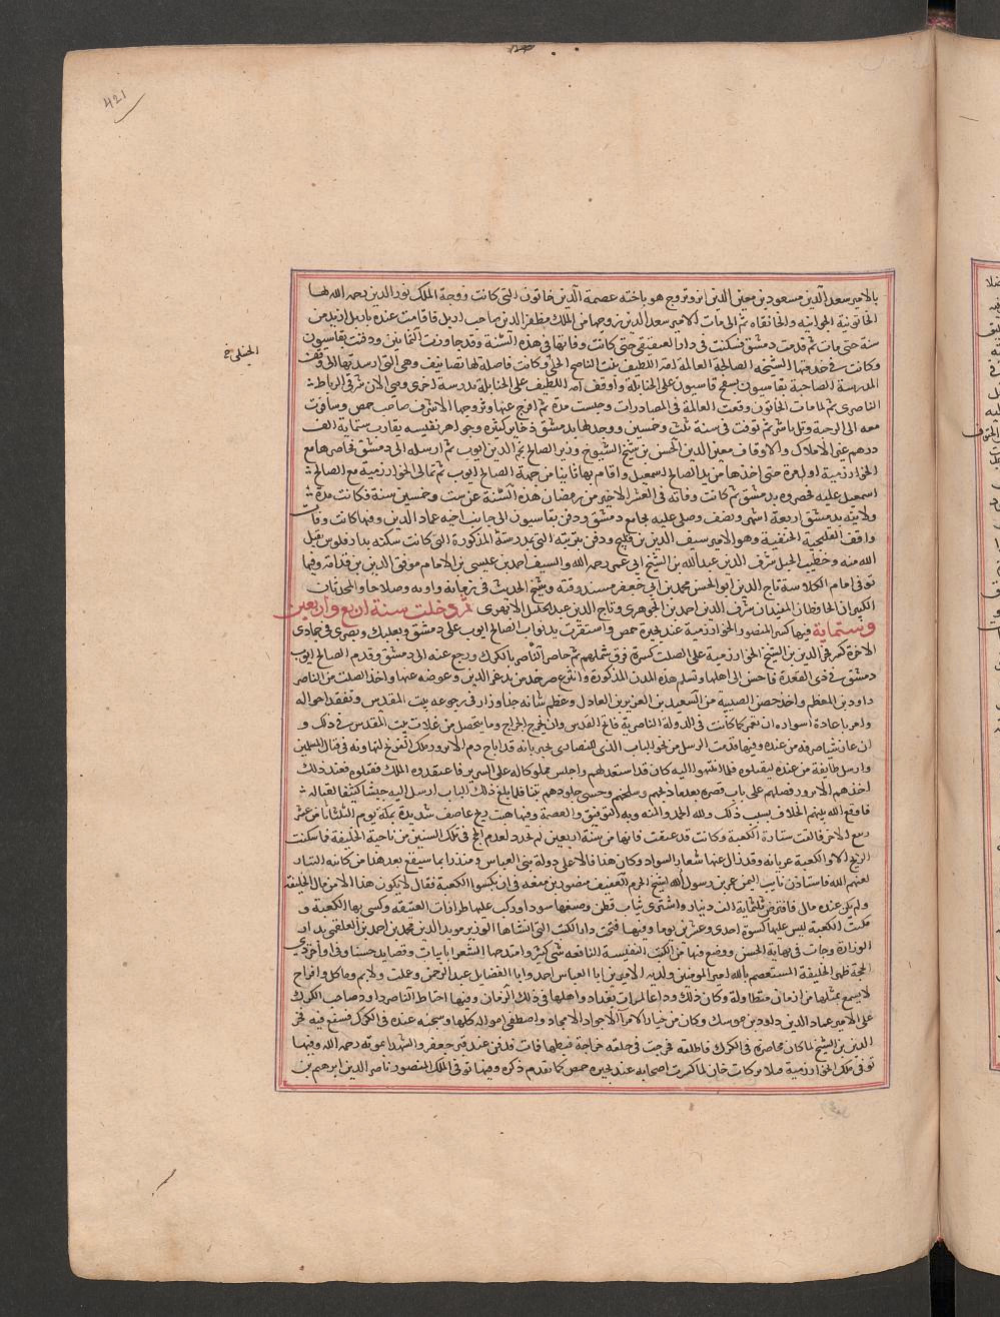 421
بالامير سعد الدين مسعود بن معين الدين انر وتزوج هو باخته عصمة الدين خاتون التى كانت زوجة الملك نور الدين رحمه الله لها
الخاتونية الجوانية والخانقاه ثم لما مات الامير سعد الدين زوجها من الملك مظفر الدين صاحب اربل فاقامت عنده باربل ازيد من
سنة حتى مات ثم قدمت دمشق فسكنت فى دار العقيقى حتى كانت وفاتها فى هذه السنة وقد جاوزت الثمانين ودفنت بقاسيون
وكانت فى خدمتها الشيخه الصالحة العالمة امة اللطيف بنت الناصح الحنبلى وكانت فاضلة لها تصانيف وهى التى ارشدتها الى وقف
الحنبلى خ
المدرسة الصاحبة بقاسيون بسفح قاسيون على الحنابلة واوقفت امة اللطيف على الحنابلة مدرسة اخرى وهى الان شرقى الرباط
الناصرى ثم لما ماتت الخاتون وقعت العالمة فى المصادرات وحبست مدة ثم افرج عنها وتزوجها الاشرف صاحب حمص وسافرت
معه الى الرحبة وتل باشر ثم توفت فى سنة ثلث وخمسين ووجد لها بدمشق ذخاير كثيرة وجواهر نفيسه يقارب ستماية الف
درهم غير الاملاك والاوقاف معين الدين الحسن بن شيخ الشيوخ وزير الصالح نجم الدين ايوب ثم ارسله الى دمشق فحاصرها مع
الخوارزمية اول مرة حتى اخذها من يد الصالح اسمعيل واقام بها نايبا من جهة الصالح ايوب ثم تمالى الخوارزمية مع الصالح
اسمعيل عليه فحصروه بدمشق ثم كانت وفاته فى العشر الاخير من رمضان هذه السنة عن ست وخمسين سنة فكانت مدة
ولايته بدمشق اربعة اشهر ونصف وصلى عليه بجامع دمشق ودفن بقاسيون الى جانب اخيه عماد الدين وفيها كانت وفات
واقف القليجية الحنفية وهو الامير سيف الدين بن قليج ودفن بتربته التى بمدرسته المذكورة التى كانت سكنه بدار فلوس تقبل
الله منه وخطيب الجبل شرف الدين عبد الله بن الشيخ ابى عمر رحمه الله والسيف احمد بن عيسى بن الامام موفق الدين بن قدامة وفيها
توفى امام الكلاسة تاج الدين ابو الحسن محمد بن ابى جعفر مسند وقته وشيخ الحديث فى زمانه واوته وصلاحا والمحدثان
الكبيران الحافظان المفيدان شرف الدين احمد بن الجوهرى وتاج الدين عبد الجليل الابهرى ثم دخلت سنة اربع واربعين
وستماية فيها كسر المنصور الخوارزمية عند بحيرة حمص واستقرت يد نواب الصالح ايوب على دمشق وبعلبك وبصرى فى جمادى
الاخرة كسر فخر الدين بن الشيخ الخوارزمية على الصلت كسرة فرق شملهم ثم حاصر الناصر بالكرك ورجع عنه الى دمشق وقدم الصالح ايوب
دمشق فى ذى القعدة فاحسن الى اهلها وتسلم هذه المدن المذكورة وانتزع صرخد من يد عز الدين وعوضه عنها واخذ الصلت من الناصر
داود بن المعظم واخذ حصن الصبيبة من السعيد بن العزيز بن العادل وعظم شانه جدا وزار فى رجوعه بيت المقدس وتفقد احواله
وامر باعادة اسواره ان تعمر كما كانت فى الدولة الناصرية فاتح القدس وان يخرج الخراج وما يتحصل من غلات بيت المقدس فى ذلك و
ان عاز شيا صرفه من عنده وفيها قدمت الرسل من نحو الباب الذى للنصارى يخبر بانه قد اباح دم الانبرور ملك الفرنج لتهاونه فى قتال المسلمين
وارسل طايفة من عنده ليقتلوه فلما انتهوا اليه كان قد استعد لهم واجلس مملوكا له على السرير فاعتقدوه الملك فقتلوه فعند ذلك
اخذهم الانبرور فصلبهم على باب قصره بعدما ذبحهم وسلخهم وحشى جلودهم تبنا فلما بلغ ذلك الباب ارسل اليه جيشا كثيفا لقتاله
فاوقع الله بينهم الخلاف بسبب ذلك ولله الحمد والمنه وبه التوفيق والعصمة وفيها هبت ريح عاصف شديدة بمكة يوم الثلثا ثامن عشر
ربيع الاخر فالقت ستارة الكعبة وكانت قد عتقت فانها من سنة اربعين لم تجدد لعدم الحج فى تلك السنين من ناحية الخليفة فما سكنت
الريح الا والكعبة عريانة وقد زال عنها شعار السواد وكان هذا فالا على دولة بنى العباس ومنذرا بما سيقع بعد هذا من كاينة التتار
لعنهم الله فاستاذن نايب اليمن عمر بن رسول الله شيخ الحرم العفيف منصور بن منعه فى ان يكسوا الكعبة فقال لا يكون هذا الا من مال الخليفة
ولم يكن عنده مال فاقترض ثلثماية الف دينار واشترى ثياب قطن وصبغها سودا وركب عليها طرازات العتيقه وكسى بها الكعبة و
مكثت الكعبة ليس عليها كسوة احدى وعشرين يوما وفيها فتحت دار الكتب التى انشاها الوزير مويد الدين محمد بن احمد بن العلقمى بدار
الوزارة وجات فى نهاية الحسن ووضع فيها من الكتب النفيسة النافعه شى كثير وامتدحها الشعرا بابيات وقصايد حسنا وفى اواخر ذى
الحجة طهر الخليفة المستعصم بالله امير المومنين ولديه الاميرين ابا العباس احمد وابا الفضايل عبد الرحمن وعملت ولايم وماكل وافراح
لا يسمع بمثلها من ازمان متطاولة وكان ذلك وداعا لمسرات بغداد واهلها فى ذلك الزمان وفيها احتاط الناصر داود صاحب الكرك
على الامير عماد الدين داود بن موسك وكان من خيار الامرآ الاجواد الامجاد واصطفى امواله كلها وسجنه عنده فى الكرك فشفع فيه فخر
الدين بن الشيخ لما كان محاصره فى الكرك فاطلقه فخرجت فى حلقه خراجة فبطها فمات فدفن عند قبر جعفر والشهدا بموته رحمه الله وفيها
توفى ملك الخوارزمية بركات خان لما كسرت اصحابه عند بحيره حمص كما تقدم ذكره وفيها توفى الملك المنصور ناصر الدين ابرهيم بن